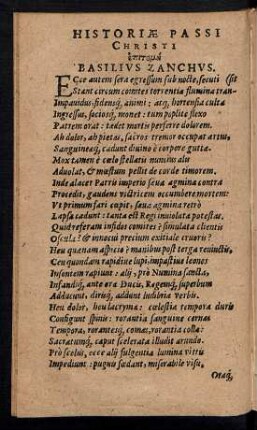 HISTORIÆ PASSI
CHRISTI
ἐπιτομὴ
BASILIVS ZANCHVS.
ECce autem sera egressum sub nocte, secuti (sit
Stant circum comites torrentia flumina tran-
Impauidus, fidensq́; animi: atq́; hortensia culta
Ingressus, sociosq́; monet: tum poplite flexo
Patrem orat: tædet mortis perferre dolorem.
Ah dolor, ah pietas, sacros tremor occupat artus,
Sanguineaq́; cadunt diuino è corpore gutta.
Mox tamen è cælo stellanti nuncius ales
Aduolat, & mœstum pellit de corde timorem.
Inde alacer Patris imperio seua agmina contra
Procedit, gaudens vltricem occumbere mortem:
Vt primum fari cupit, seua agmina retrò
Lapsa cadunt: tanta est Regi inuiolata potestas.
Quid referam infidos comites? simulata clientis
Oscula? & innocui precium exitiale cruoris?
Heu quenam aspicio? manibus post terga reuinctis,
Ceu quondam rapidine lupi, impastiue leones
Insontem rapiunt: alij, prò Numina sancta,
Insandiq́; ante ora Ducũ, Regumq́; superbum
Adducunt, diriq́; addunt ludibria verbis.
Heu dolor, heu lacryma: cælestia tempora duris
Configunt spinis: rorantia sanguine cernas
Tempora, rorantesq́; comas, rorantia colla:
Sacratumq́; caput scelerata illudit arundo.
Prò scelus, ecce alij fulgentia lumina vittis
Impediunt: pugnis cædunt, miserabile visu,
Oraq́;